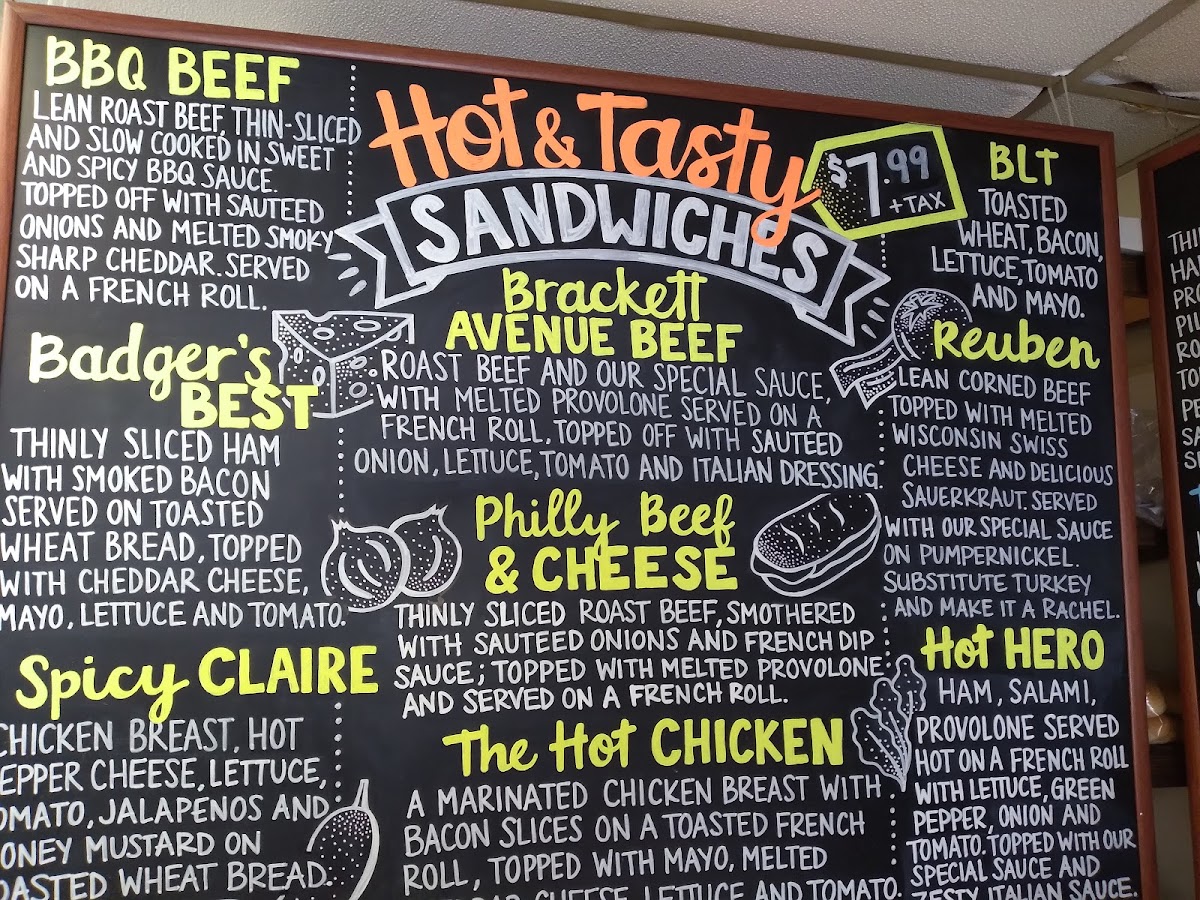 BBQ BEEF
LEAN ROAST BEEF, THIN-SLICED
AND SLOW COOKED IN SWEET
AND SPICY BBQ SAUCE.
TOPPED OFF WITH SAUTEED
ONIONS AND MELTED SMOKY
SHARP CHEDDAR. SERVED
ON A FRENCH ROLL.
Badger's
BEST
THINLY SLICED HAM
WITH SMOKED BACON
SERVED ON TOASTED
WHEAT BREAD, TOPPED
WITH CHEDDAR CHEESE,
MAYO, LETTUCE AND TOMATO.
Spicy CLAIRE
CHICKEN BREAST, HOT
PEPPER CHEESE, LETTUCE,
TOMATO, JALAPENOS AND
HONEY MUSTARD ON
TOASTED WHEAT BREAD.
Hot & Tasty
SANDWICHES
$7.99
+ TAX
Brackett
AVENUE BEEF
ROAST BEEF AND OUR SPECIAL SAUCE,
WITH MELTED PROVOLONE SERVED ON A
FRENCH ROLL, TOPPED OFF WITH SAUTEED
ONION, LETTUCE, TOMATO AND ITALIAN DRESSING.
Philly Beef
& CHEESE
THINLY SLICED ROAST BEEF, SMOTHERED
WITH SAUTEED ONIONS AND FRENCH DIP
SAUCE; TOPPED WITH MELTED PROVOLONE
AND SERVED ON A FRENCH ROLL.
The Hot CHICKEN
A MARINATED CHICKEN BREAST WITH
BACON SLICES ON A TOASTED FRENCH
ROLL, TOPPED WITH MAYO, MELTED
CHEESE, LETTUCE AND TOMATO.
BLT
TOASTED
WHEAT, BACON,
LETTUCE, TOMATO
AND MAYO.
Reuben
LEAN CORNED BEEF
TOPPED WITH MELTED
WISCONSIN SWISS
CHEESE AND DELICIOUS
SAUERKRAUT. SERVED
WITH OUR SPECIAL SAUCE
ON PUMPERNICKEL.
SUBSTITUTE TURKEY
AND MAKE IT A RACHEL.
Hot HERO
HAM, SALAMI,
PROVOLONE SERVED
HOT ON A FRENCH ROLL
WITH LETTUCE, GREEN
PEPPER, ONION AND
TOMATO. TOPPED WITH OUR
SPECIAL SAUCE AND
ZESTY ITALIAN SAUCE.